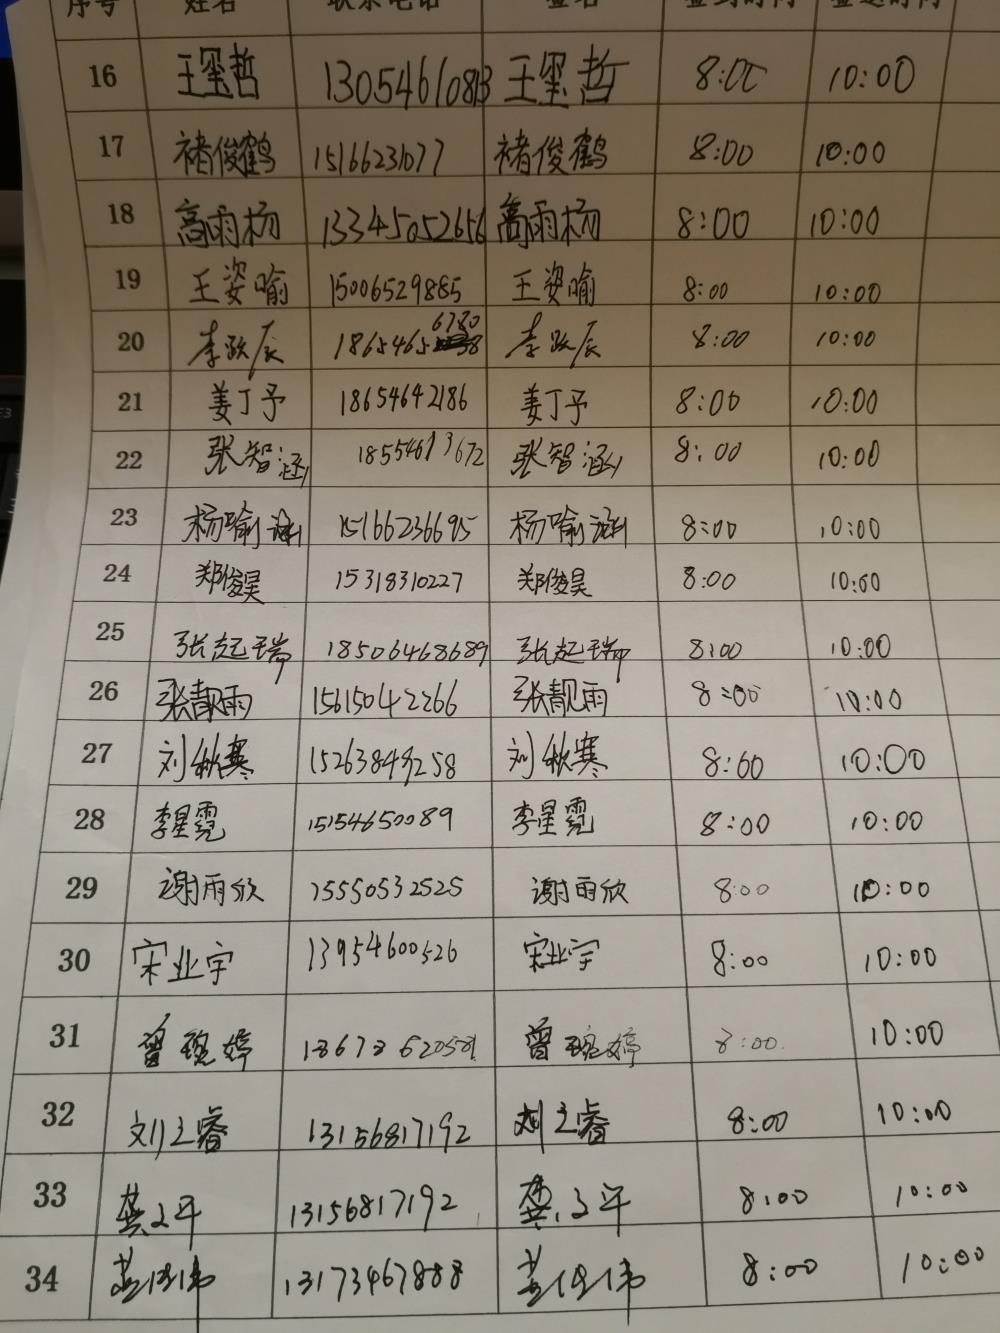 序号 姓名 联系电话 签名 签到时间 签退时间
16 王玺哲 13054610813 王玺哲 8:00 10:00
17 褚俊鹤 15166231077 褚俊鹤 8:00 10:00
18 高雨杨 13345052656 高雨杨 8:00 10:00
19 王姿喻 15006529885 王姿喻 8:00 10:00
20 李跃辰 18654656780 李跃辰 8:00 10:00
21 姜丁予 18654642186 姜丁予 8:00 10:00
22 张智涵 18554613672 张智涵 8:00 10:00
23 杨喻涵 15166236695 杨喻涵 8:00 10:00
24 郑俊昊 15318310227 郑俊昊 8:00 10:00
25 张起瑞 18506468689 张起瑞 8:00 10:00
26 张靓雨 15615042266 张靓雨 8:00 10:00
27 刘秋寒 15263849258 刘秋寒 8:00 10:00
28 李星霓 15154650089 李星霓 8:00 10:00
29 谢雨欣 15550532525 谢雨欣 8:00 10:00
30 宋业宇 13954600526 宋业宇 8:00 10:00
31 曾琬婷 18678620581 曾琬婷 8:00 10:00
32 刘之睿 13156817192 刘之睿 8:00 10:00
33 龚文平 13156817192 龚文平 8:00 10:00
34 13173467888 8:00 10:00